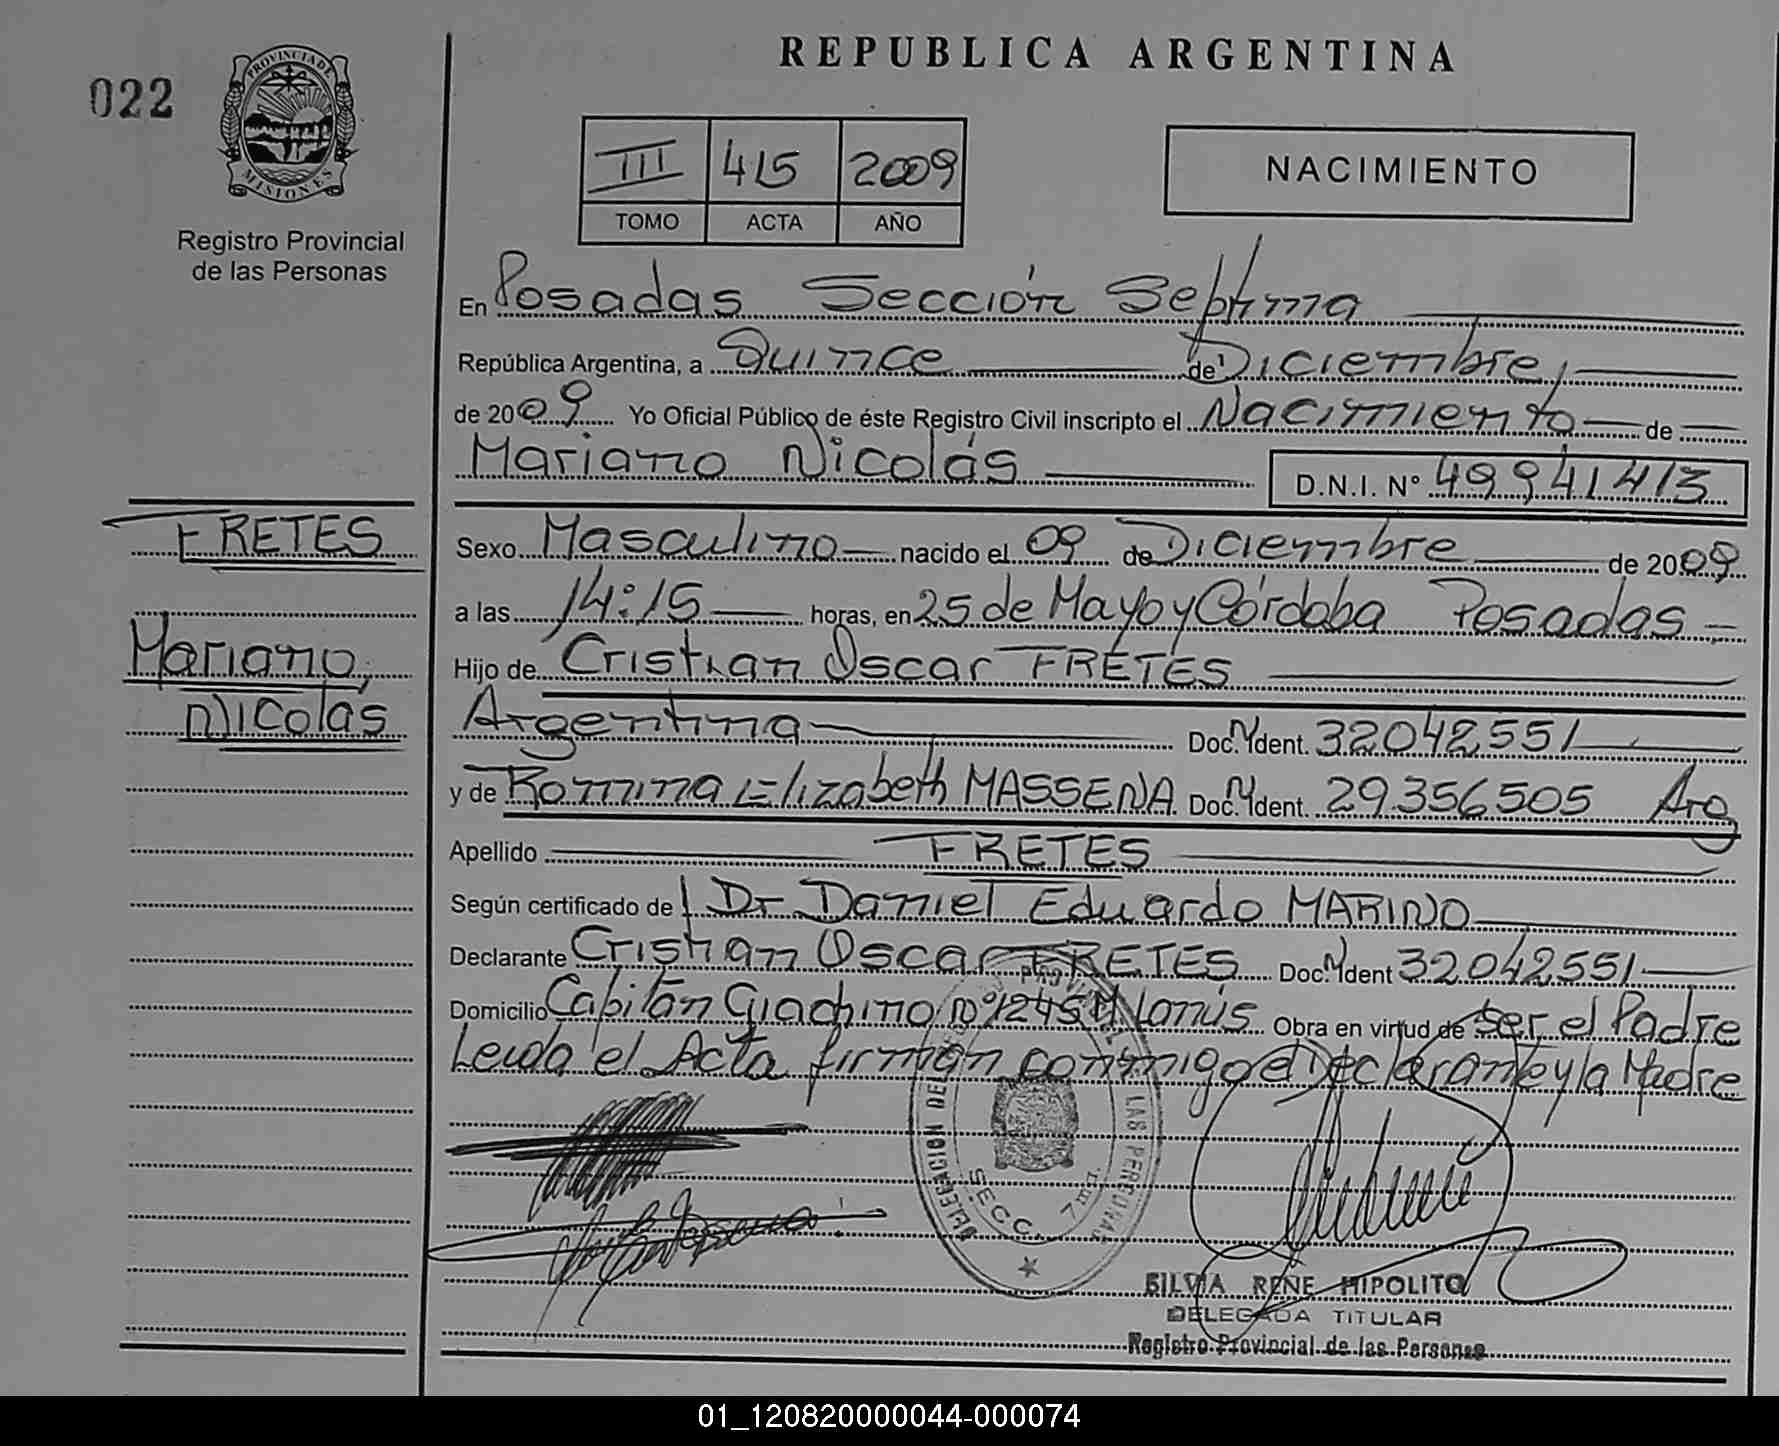 REPUBLICA ARGENTINA
022
PROVINCIA DE MISIONES
Registro Provincial
de las Personas
III 415 2009
TOMO ACTA AÑO
NACIMIENTO
En Posadas Sección Septima
República Argentina, a Quince de Diciembre,
de 2009 Yo Oficial Público de éste Registro Civil inscripto el Nacimiento de
Mariano Nicolás D.N.I. N° 49941413
FRETES
Mariano
Nicolás
Sexo Masculino nacido el 09 de Diciembre de 2009
a las 14:15 horas, en 25 de Mayo y Córdoba Posadas
Hijo de Cristian Oscar FRETES
Argentina Doc. Ident. 32042551
y de Romina Elizabeth MASSENA Doc. Ident. 29356505 Arg
Apellido FRETES
Según certificado de Dr Daniel Eduardo MARINO
Declarante Cristian Oscar FRETES Doc. Ident 32042551
Domicilio Capitán Giachino N° 1245 Lanús Obra en virtud de ser el Padre
Leida el Acta firman conmigo el Declarante y la Madre
LAS PERSONAS
SECC.
SILVIA RENE HIPOLITO
DELEGADA TITULAR
Registro Provincial de las Personas
01_120820000044-000074